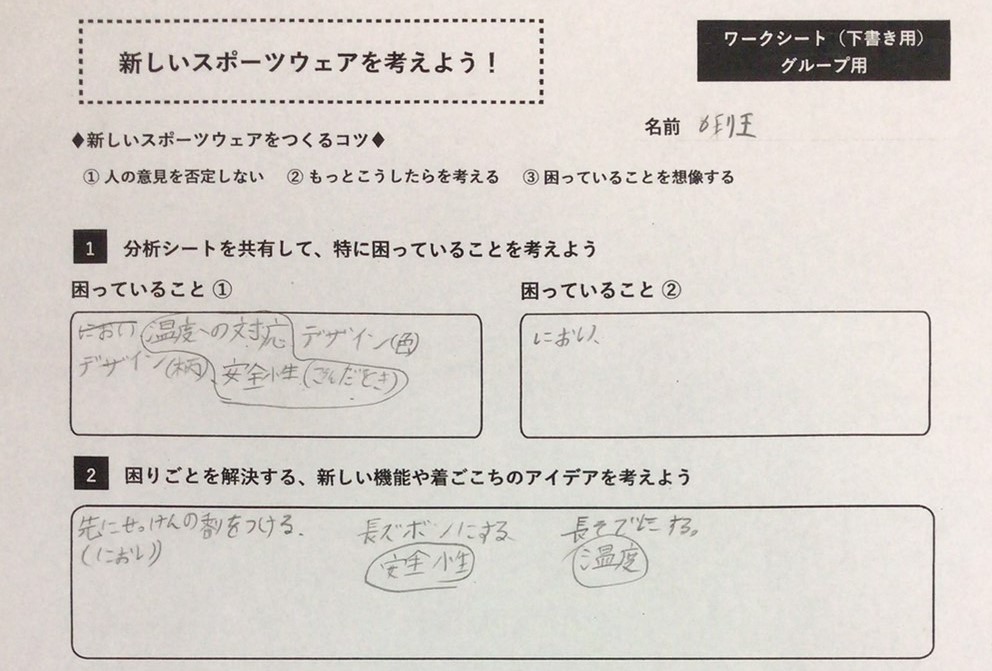 新しいスポーツウェアを考えよう！
ワークシート（下書き用）
グループ用
名前 6班
◆新しいスポーツウェアをつくるコツ◆
① 人の意見を否定しない ② もっとこうしたらを考える ③ 困っていることを想像する
1 分析シートを共有して、特に困っていることを考えよう
困っていること ①
におい 温度への対応 デザイン(色)
デザイン(柄) 安全性(ころんだとき)
困っていること ②
におい、
2 困りごとを解決する、新しい機能や着ごこちのアイデアを考えよう
先にせっけんの香をつける。
(におい)
長ズボンにする
安全性
長そでにする。
温度